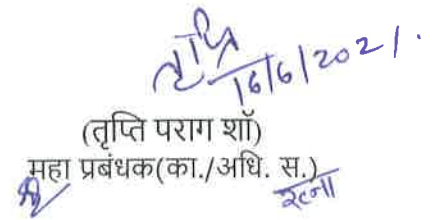 तृप्ति
16/6/2021.
(तृप्ति पराग शॉ)
महा प्रबंधक(का./अधि. स.)
रत्ना